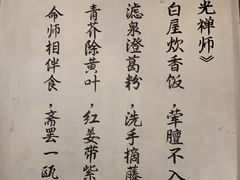 光禅师》
白屋炊香饭,荤膻不入
滤泉澄葛粉,洗手摘藤
青芥除黄叶,红姜带紫
命师相伴食,斋罢一瓯